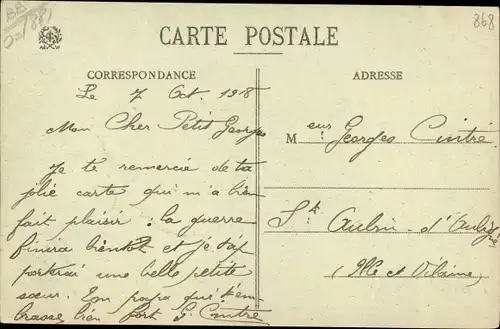 BB
0=/88)
868
CARTE POSTALE
CORRESPONDANCE
ADRESSE
Le 7 Oct. 1918
Mon Cher Petit Georges
Je te remercie de ta
jolie carte qui m'a bien
fait plaisir : la guerre
finira bientôt et je t'ap
porterai une belle petite
sœur. Ton papa qui t'em
brasse bien fort G. Cintré
Meur Georges Cintré
St Aubin-d'Aubigné
(Ille et Vilaine)